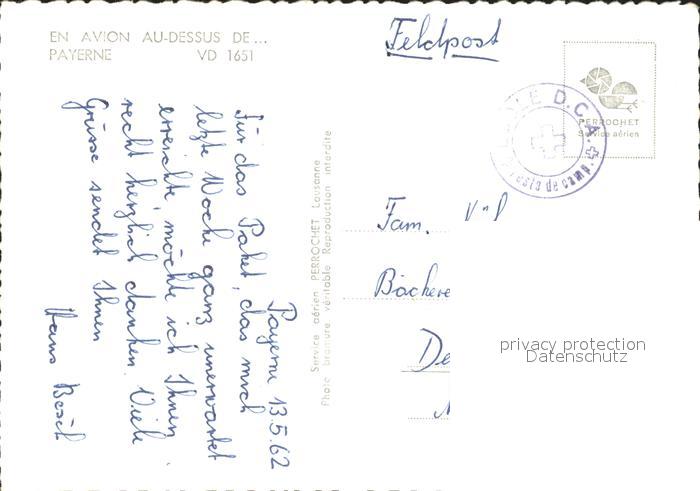 EN AVION AU-DESSUS DE...
PAYERNE VD 1651
Feldpost
PERROCHET
Service aérien
D.C.A.
Poste de camp
Service aérien PERROCHET Lausanne
Photo bromure véritable Reproduction interdite
Payerne 13.5.62
Für das Paket, das mich
letzte Woche ganz unerwartet
erreichte, möchte ich Ihnen
recht herzlich danken. Viele
Grüsse sendet Ihnen
Hans
Fam.
Bäckere
De
privacy protection
Datenschutz